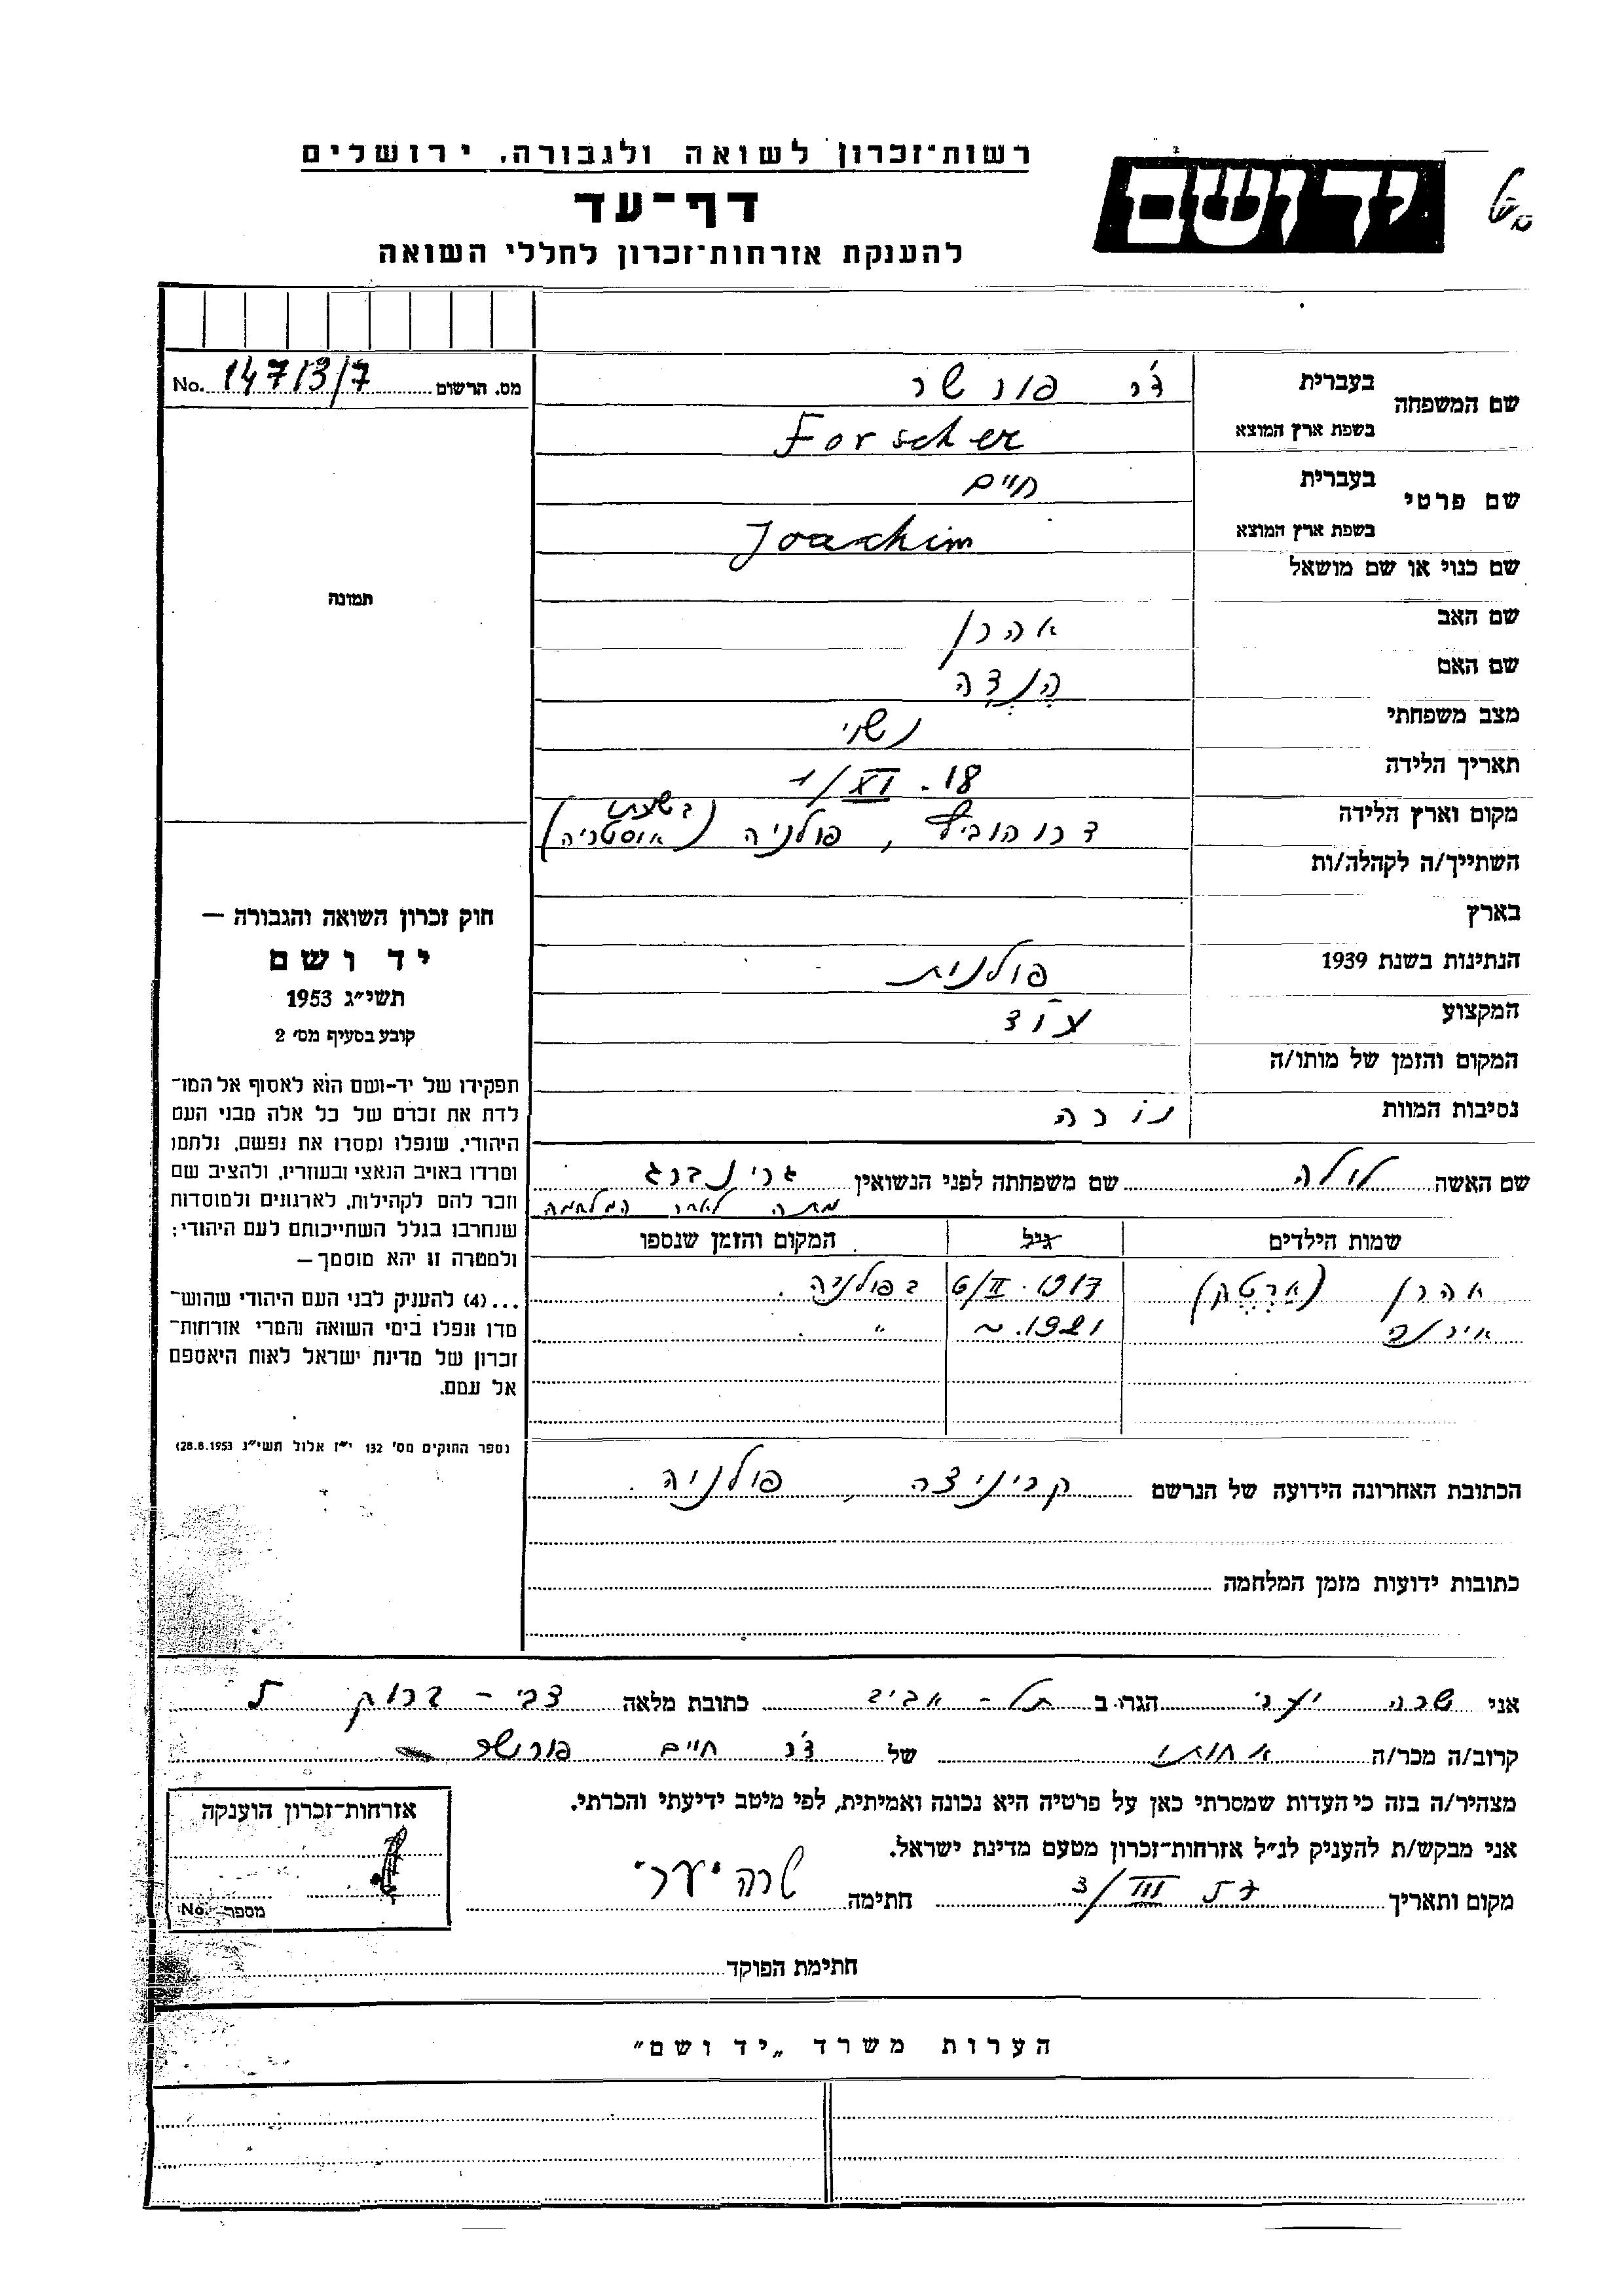 רשות־זכרון לשואה ולגבורה, ירושלים
יד ושם
דף־עד
להענקת אזרחות־זכרון לחללי השואה
מס. הרשום 147/3/7 No.
שם המשפחה
בעברית ד״ר פורשר
בשפת ארץ המוצא Forscher
שם פרטי
בעברית חיים
בשפת ארץ המוצא Joachim
תמונה
שם כנוי או שם מושאל
שם האב אהרן
שם האם הנדה
מצב משפחתי נשוי
תאריך הלידה 18. XI/1
מקום וארץ הלידה דרוהוביץ, פולניה (אוסטריה)
השתייך/ה לקהלה/ות
בארץ
הנתינות בשנת 1939 פולנית
המקצוע עו״ד
המקום והזמן של מותו/ה
נסיבות המוות נורה
חוק זכרון השואה והגבורה —
יד ושם
תשי״ג 1953
קובע בסעיף מס׳ 2
תפקידו של יד-ושם הוא לאסוף אל המו־
לדת את זכרם של כל אלה מבני העם
היהודי, שנפלו ומסרו את נפשם, נלחמו
ומרדו באויב הנאצי ובעוזריו, ולהציב שם
וזכר להם לקהילות, לארגונים ולמוסדות
שנחרבו בגלל השתייכותם לעם היהודי;
ולמטרה זו יהא מוסמך—
...(4) להעניק לבני העם היהודי שהוש־
מדו ונפלו בימי השואה והמרי אזרחות־
זכרון של מדינת ישראל לאות היאספם
אל עמם.
(ספר החוקים מס׳ 132 י״ז אלול תשי״ג 28.8.1953)
שם האשה לולה שם משפחתה לפני הנשואין גרינברג
מתה לאחר המלחמה
שמות הילדים גיל המקום והזמן שנספו
אהרן (ארטק) 1917. II/6 בפולניה.
אירנה 1921. ~ " .
הכתובת האחרונה הידועה של הנרשם קריניצה, פולניה.
כתובות ידועות מזמן המלחמה
אני שרה יערי הגר/ב תל-אביב כתובת מלאה צבי-ברוק 5
קרוב/ה מכר/ה אחותו של ד״ר חיים פורשר
מצהיר/ה בזה כי העדות שמסרתי כאן על פרטיה היא נכונה ואמיתית, לפי מיטב ידיעתי והכרתי.
אני מבקש/ת להעניק לנ״ל אזרחות־זכרון מטעם מדינת ישראל.
מקום ותאריך III/3 חתימה שרה יערי
אזרחות־זכרון הוענקה
מספר No.
חתימת הפוקד
הערות משרד „יד ושם״